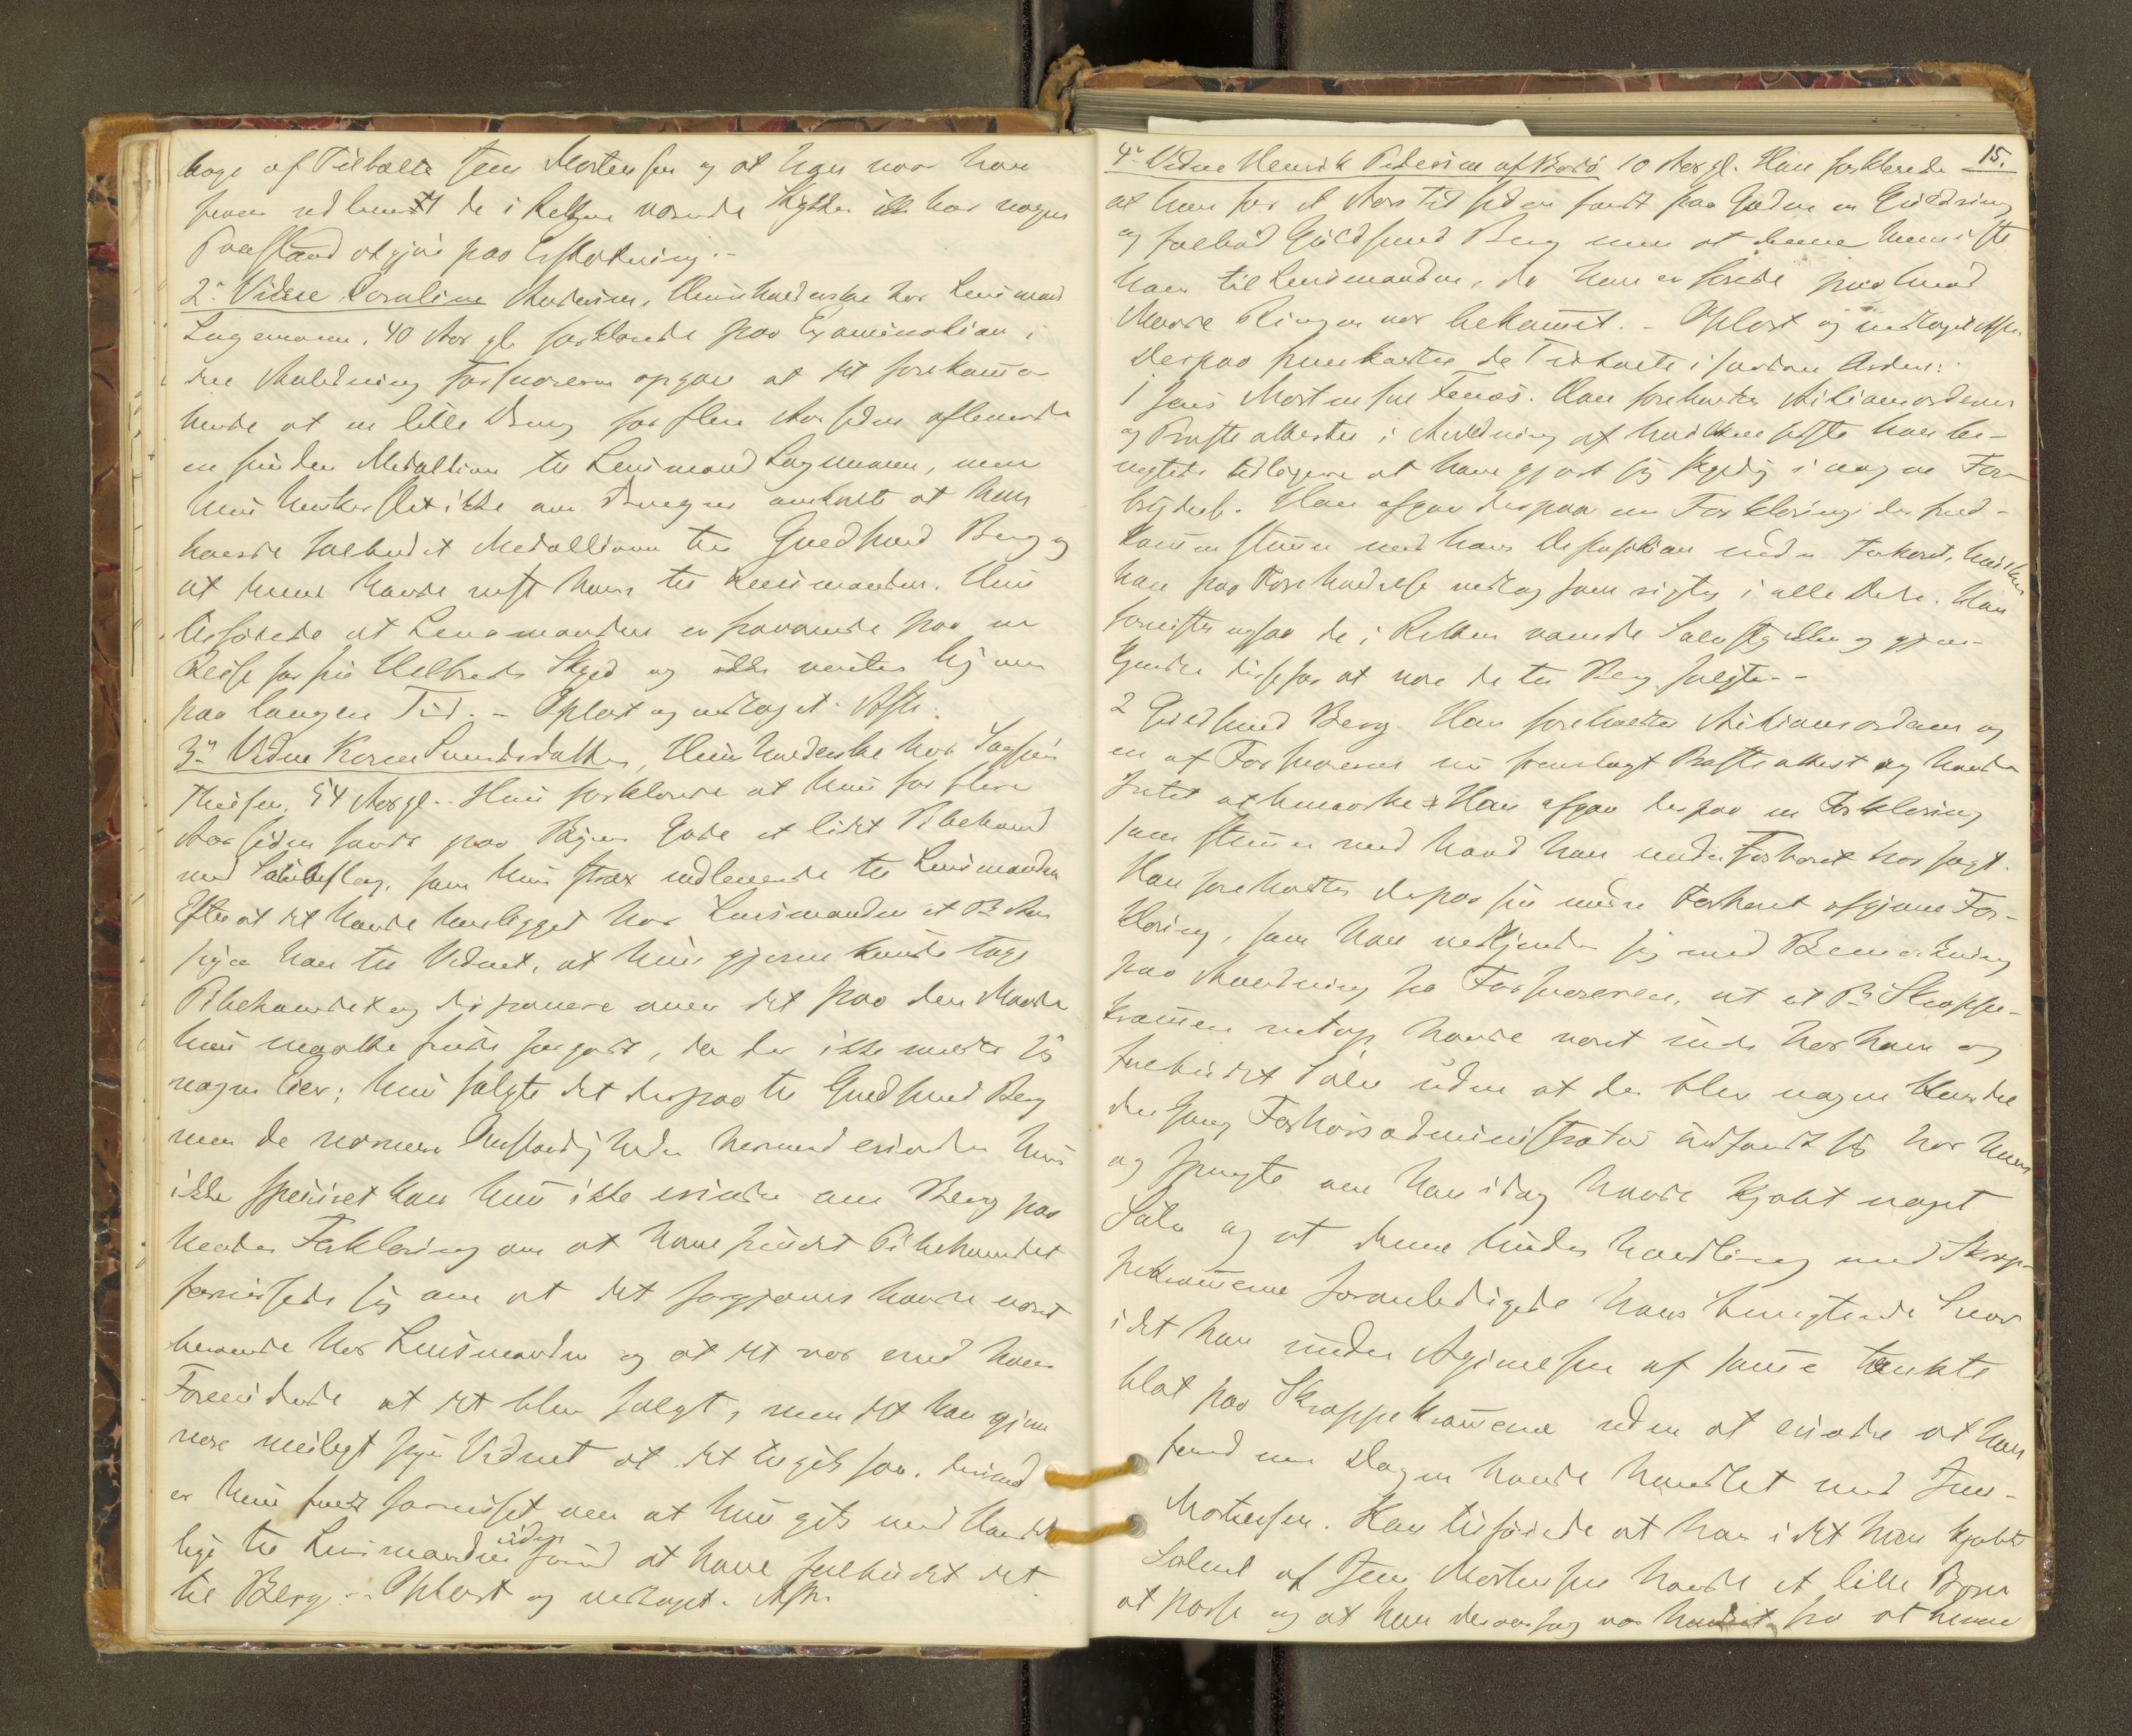 bage af Tilbælte Jens Mortensen og at han naar han
faaer udleveret de i Retten værende Stykker ikke har nogen
Paastand at gjøre paa Erstatning.-
2det Vidne Caroline Andersen, Huusholderske hos Lensmand
Lagemann, 40 Aar gl. forklarede paa Examination i
den Anledning Forsvareren opgav at det forekommer
hende at en lille Dreng for flere Aar siden afleverede
en funden Medaillon til Lensmand Lagemann, men
hun husker slet ikke om Drengen omtalte at han
havde falbudt Medaillonen til Guldsmed Berg og
at denne havde viist ham til Lensmanden. Hun
tilføiede at Lensmanden er fraværende paa en
Reise for sin Helbreds Skyld og ikke ventes hjem
paa langen Tid. - Oplæst og vedtaget. Aftr.
3die Vidne Karen Amundsdatter, Huusholderske hos Sagfører
Thiisen, 54 Aar gl. - Hun forklarede at hun for flere
Aar siden fandt paa Byens Gade et lidet Pibehoved
med Sølvbeslag, som hun strax indleverede til Lensmanden
Efter at det havde henligget hos Lensmanden et Par Aar
sagde han til Vidnet, at hun gjerne kunde tage
Pibehovedet og disponere over det paa den Maade
hun maatte finde for godt, da der ikke meldte sig
nogen Eier; hun solgte det derpaa til Guldsmed Berg
men de nærmere Omstændigheder herved erindrer hun
ikke specielt kan hun ikke erindre om Berg paa
hendes Forklaring om at have fundet Pibehovedet
forvissede sig om at det forgjæves havde været
beroende hos Lensmanden og at det var med hans
Forevidende at det blev solgt, men det kan gjerne
være muligt siger Vidnet at det tilgik saa, derimod
er hun fuldt forvisset om at hun gik med Hovedet
lige til Lensmanden uden først at have falbudt det
til Berg. - Oplæst og vedtaget. Aftr.
15.
4de Vidne Henrik Pedersen af Bodø 10 Aar gl. Han forklarede
at han for et Aars Tid siden fandt paa Gaden en Guldring
og falbød Guldsmed Berg men at denne henviste
ham til Lensmanden, da han er for at paa hvad
Maade Ringen var bekommet. - Oplæst og vedtaget Aftr.
Derpaa fremkaldtes de Tiltalte i saadan Orden:
1 Jens Mortensen Fenes. Han foreholdtes Actionsordenen
og Præsteattesten i Anledning af hvilken sidste han be-
nægtede tidligere at have gjort sig skyldig i nogen For-
brydelse. Han afgav derpaa en Forklaring der fuld-
kommen stemmer med hans Deposition under Forhøret, hvilken
han paa Foreholdelse vedtog som rigtig i alle Dele. Han
forevistes ogsaa de i Retten værende Sølvstykker og gjen-
kjendte disse for at være de til Berg solgte. -
2 Guldsmed Berg. Han foreholdtes Actionsordenen og
en af Forsvareren nu fremlagt Præsteattest og havde
Intet at bemærke. Han afgav derpaa en Forklaring
som stemmer med hvad han under Forhøret har sagt.
Han foreholdtes derpaa sin under Forhøret afgivne For-
klaring, som han vedkjendte sig med Bemærkning
paa Anledning fra Forsvareren, at et Par Skreppe-
kræmmere netop havde været inde hos ham og
falbudt Sølv uden at der blev nogen Handel
den Gang Forhørsadministrator indfandt sig hos ham
og spurgte om han idag havde kjøbt noget
Sølv og at denne hindes handling med Skrep-
pekræmmerne foranledigede hans benægtende Svar
idet han under Afgivelsen af samme tænkte
blot paa Skreppekræmmerne uden at erindre at han
forud om Dagen havde handlet med Jens
Mortensen. Han tilføiede at han i det han kjøbte
Sølvet af Jens Mortensen havde et lille Barn
at passe og at han derved saa var hindret fra at kunne